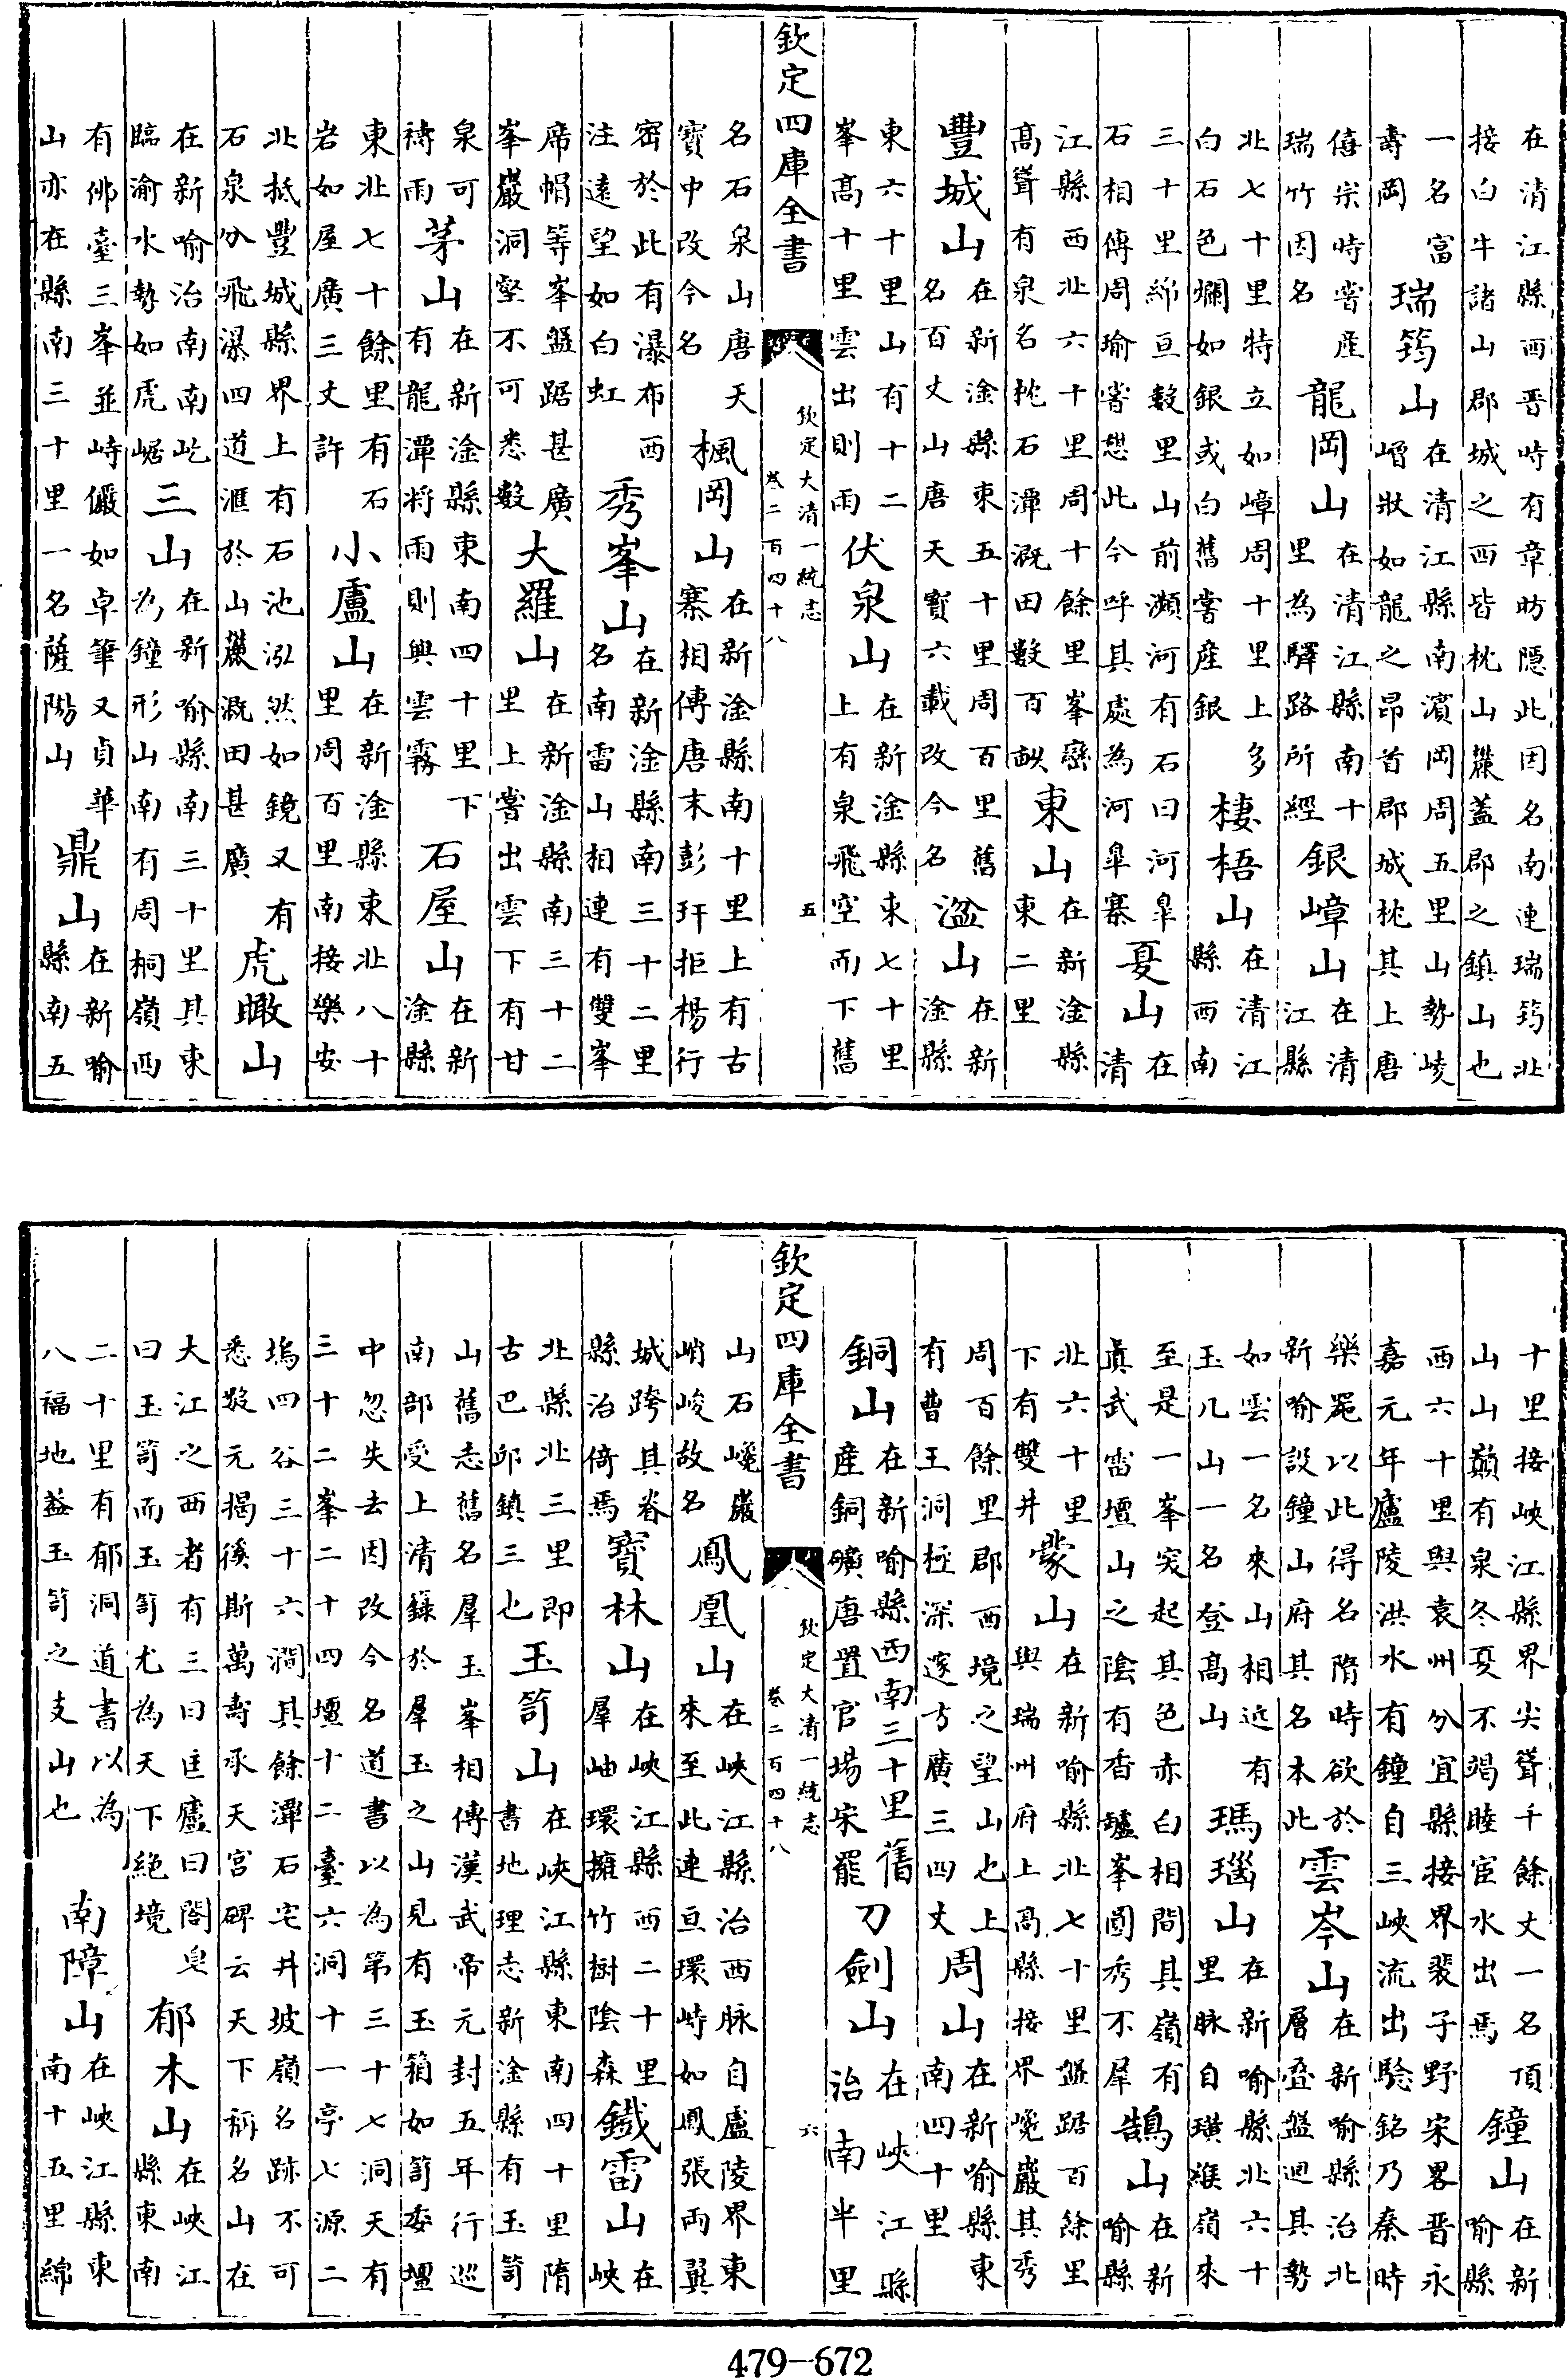 在清江縣西晋時有章昉隠此因名南連瑞筠北
接白牛諸山郡城之西皆枕山麓蓋郡之鎮山也
一名富
壽岡
瑞筠山
在清江縣南濵岡周五里山勢崚
嶒狀如龍之昻首郡城枕其上唐
僖宗時甞産
瑞竹因名
龍岡山
在清江縣南十
里為驛路所經
銀嶂山
在清
江縣
北七十里特立如嶂周十里上多
白石色爛如銀或白舊甞産銀
棲梧山
在清江
縣西南
三十里綿亘數里山前瀕河有石曰河臯
石相傳周瑜甞憇此今呼其處為河臯寨
夏山
在
清
江縣西北六十里周十餘里峯巒
髙聳有泉名枕石潭溉田數百畝
東山
在新淦縣
東二里
豐城山
在新淦縣東五十里周百里舊
名百丈山唐天寳六載改今名
湓山
在新
淦縣
東六十里山有十二
峯髙十里雲出則雨
伏泉山
在新淦縣東七十里
上有泉飛空而下舊
欽定四庫全書
欽定大清一統志
卷二百四十八
五
名石泉山唐天
寳中改今名
楓岡山
在新淦縣南十里上有古
寨相傳唐末彭玕拒楊行
密於此有瀑布西
注逺望如白虹
秀峯山
在新淦縣南三十二里
名南雷山相連有雙峯
席帽等峯盤踞甚廣
峯巖洞壑不可悉數
大羅山
在新淦縣南三十二
里上甞出雲下有甘
泉可
禱雨
茅山
在新淦縣東南四十里下
有龍潭將雨則興雲霧
石屋山
在新
淦縣
東北七十餘里有石
岩如屋廣三丈許
小廬山
在新淦縣東北八十
里周百里南接樂安
北抵豐城縣界上有石池泓然如鏡又有
石泉分飛瀑四道滙於山麓溉田甚廣
虎瞰山
在新喻治南南屹
臨渝水勢如虎踞
三山
在新喻縣南三十里其東
為鐘形山南有周桐嶺西
有佛臺三峯並峙儼如卓筆又貞華
山亦在縣南三十里一名薩陽山
鼎山
在新喻
縣南五
十里接峽江縣界尖聳千餘丈一名頂
山山巔有泉冬夏不竭睦宦水出焉
鐘山
在新
喻縣
西六十里與袁州分宜縣接界裴子野宋畧晋永
嘉元年廬陵洪水有鐘自三峽流出騐銘乃秦時
樂器以此得名隋時欲於
新喻設鐘山府其名本此
雲岑山
在新喻縣治北
層疊盤迴其勢
如雲一名來山相近有
玉几山一名登髙山
瑪瑙山
在新喻縣北六十
里脉自璜𠋫嶺來
至是一峯突起其色赤白相間其嶺有
真武雷壇山之隂有香爐峯圓秀不羣
鵠山
在新
喻縣
北六十里
下有雙井
蒙山
在新喻縣北七十里盤踞百餘里
與瑞州府上髙縣接界巉巖其秀
周百餘里郡西境之望山也上
有曹王洞極深邃方廣三四丈
周山
在新喻縣東
南四十里
銅山
在新喻縣西南三十里舊
産銅礦唐置官場宋罷
刀劍山
在峽江縣
治南半里
欽定四庫全書
欽定大清一統志
卷二百四十八
六
山石巉巖
峭峻故名
鳳凰山
在峽江縣治西脉自廬陵界東
來至此連亘環峙如鳳張兩翼
城跨其脊
縣治倚焉
寳林山
在峽江縣西二十里
羣岫環擁竹樹隂森
鐵雷山
在
峽
北縣北三里即
古巴邱鎮三也
玉笥山
在峽江縣東南四十里隋
書地理志新淦縣有玉笥
山舊志舊名羣玉峯相傳漢武帝元封五年行巡
南部受上清籙於羣玉之山見有玉箱如笥委壇
中忽失去因改今名道書以為第三十七洞天有
三十二峯二十四壇十二臺六洞十一亭七源二
塢四谷三十六澗其餘潭石宅井坡嶺名跡不可
悉𥿄元揭傒斯萬壽承天宫碑云天下稱名山在
大江之西者有三曰匡廬曰閤皂
曰玉笥而玉笥尤為天下絶境
郁木山
在峽江
縣東南
二十里有郁洞道書以為
八福地蓋玉笥之支山也
南障山
在峽江縣東
南十五里綿
479—672